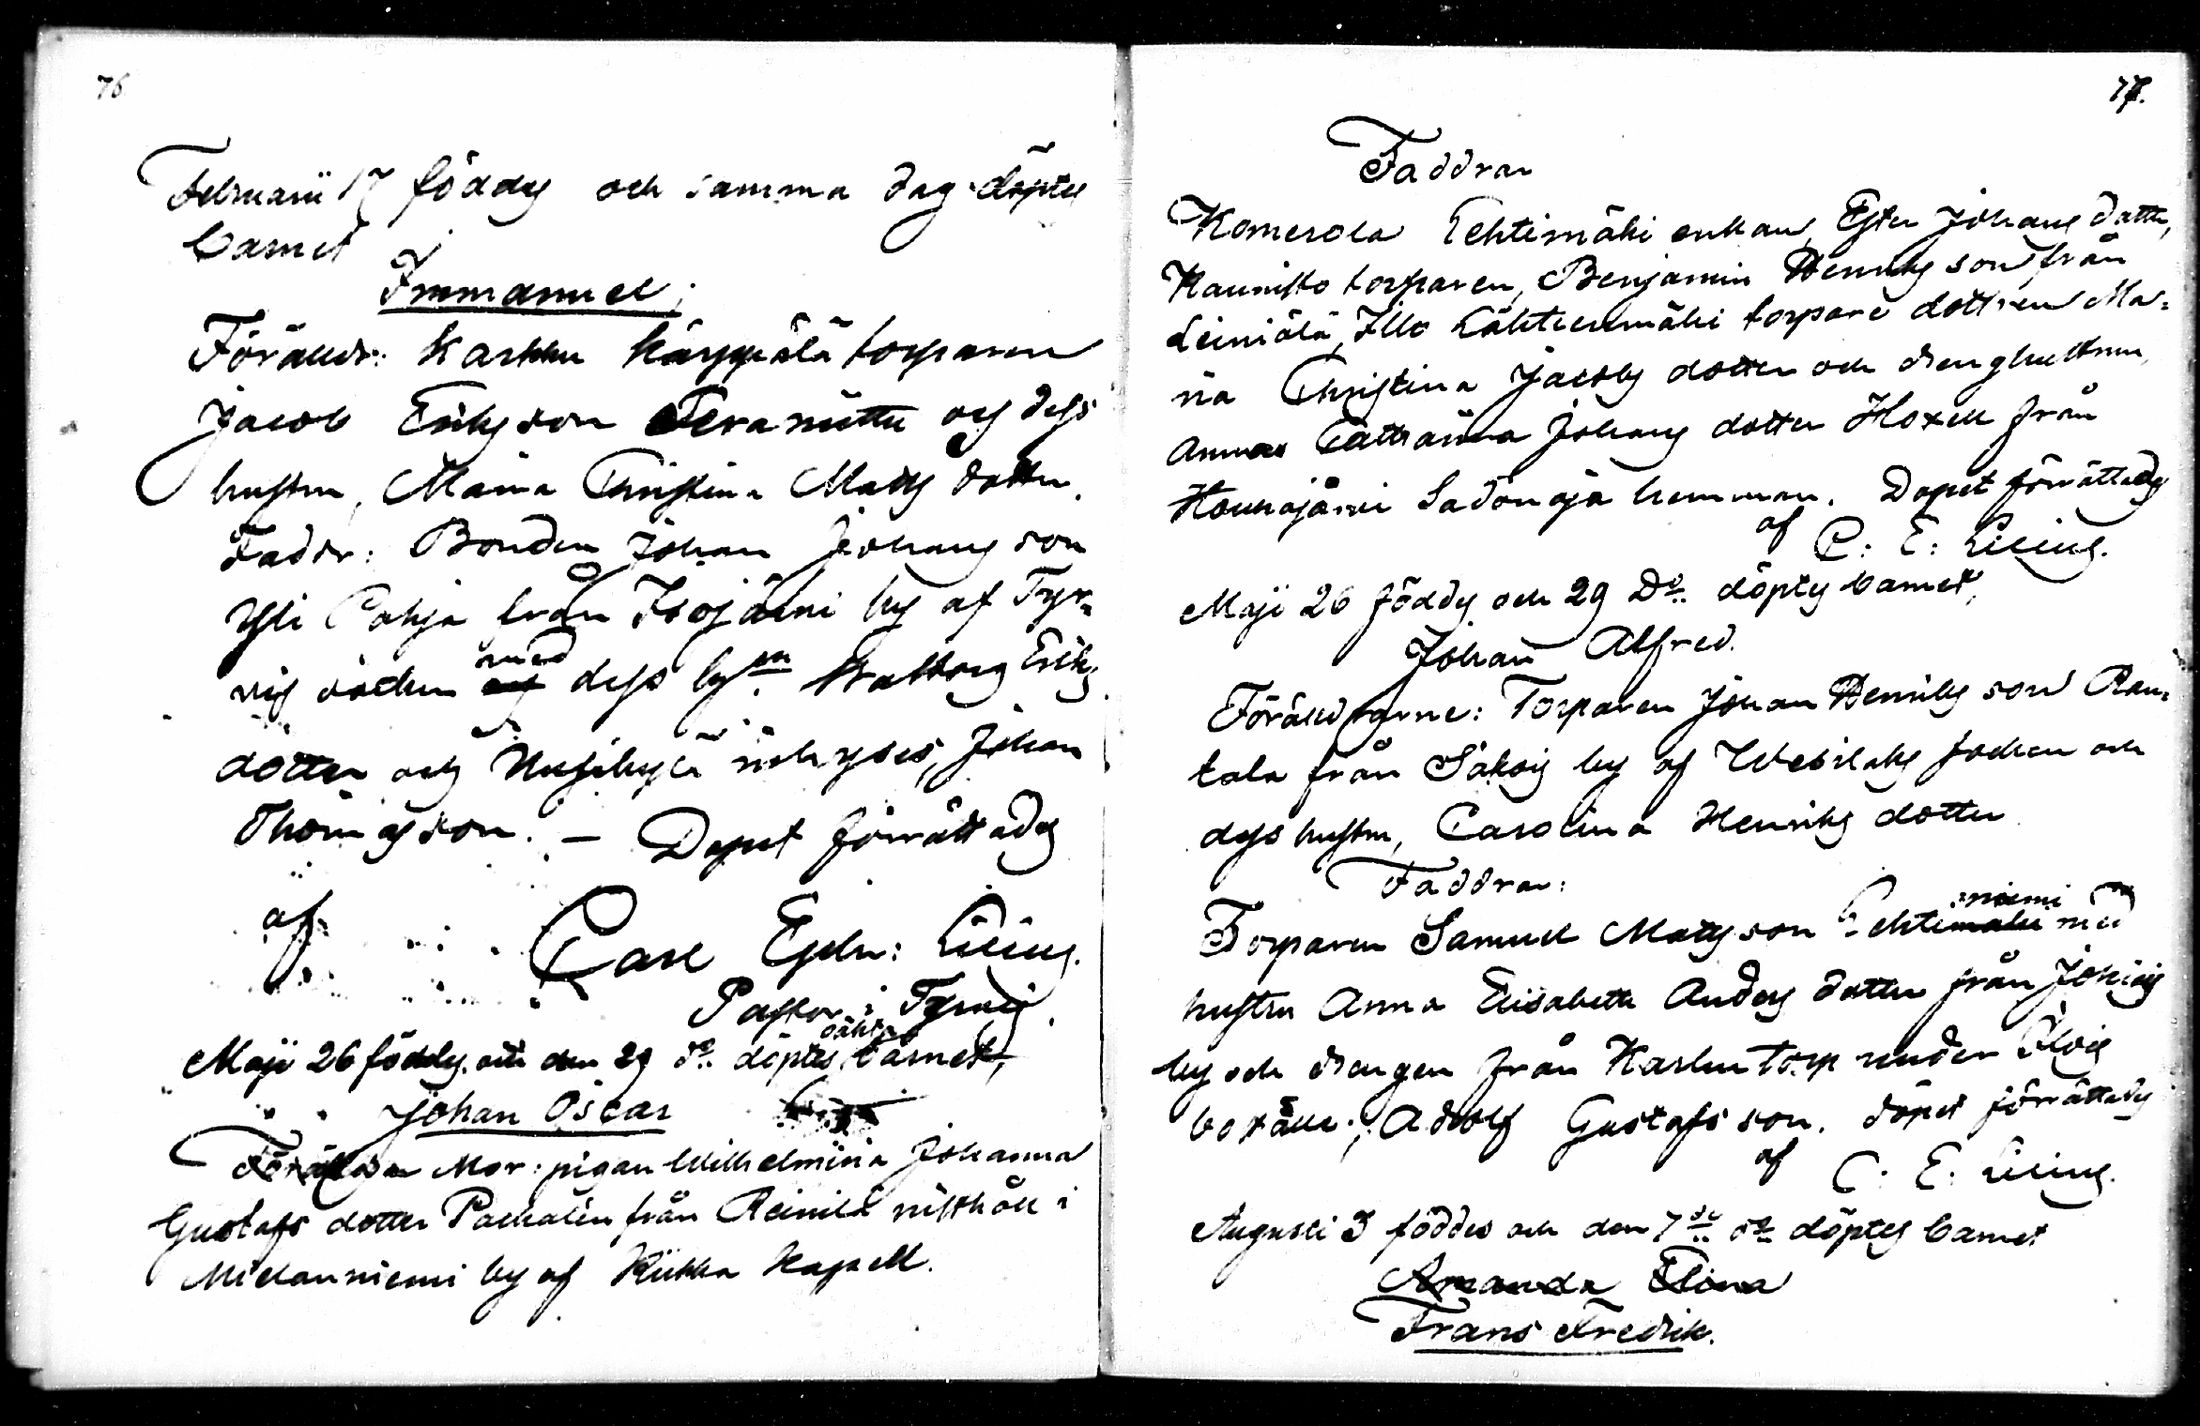 76
Februarii 17 föddes och samma dag döptes
barnet
Immanuel;
Föräldr: Karkku Kärppälä torparen
Jacob Eriksson Teraniittu och dess
hustru, Maria Christina Mattsdotter.
Faddr: Bonden Johan Johansson
Yli Pohja från Isojärvi by af Tyr-
vis socken med dess h:u Walborg Eriks
dotter och inhyses, Johan
Thomasson. — Dopet förrättades
af
Carl Edv: Lilius.
Pastor i Tyrvis.
Maji 26 föddes och den 29 d:o döptes oäkta barnet,
Johan Oscar
Föräldra Mor: pigan Wilhelmina Johanna
Gustafs dotter från Reinilä rusthåll i
by af Kiikka Kapell.
77.
Faddrar
Komerola Lehtimäki enkan, Ester Johans dotter,
Kaunisto torparen, Benjamin Henriksson från
Leiniälä, Illo Lähteenmäki torpare dottren Ma-
ria Christina Jacobs dotter och drenghustrun,
Anna Catharina Johans dotter Hoxell från
Houhajärvi hemman. Dopet förrättades
af C: E: Lilius.
Maji 26 föddes och 29 D:o döptes barnet,
Johan Alfred.
Föräldrarne: Torparen Johan Henriksson Rau-
tala från by af Wesilaks socken och
dess hustru, Carolina Henriks dotter
Faddrar:
Torparen Samuel Mattsson Lehtimäki niemi med
hustru Anna Elisabeth Anders dotter från
by och drengen från Karlun torp under
boställe; Adolf Gustafsson. Dopet förrättades
af C: E: Lilius.
Augusti 3 föddes och den 7:de d:o döptes barnet
Amanda Elina
Frans Fredrik.